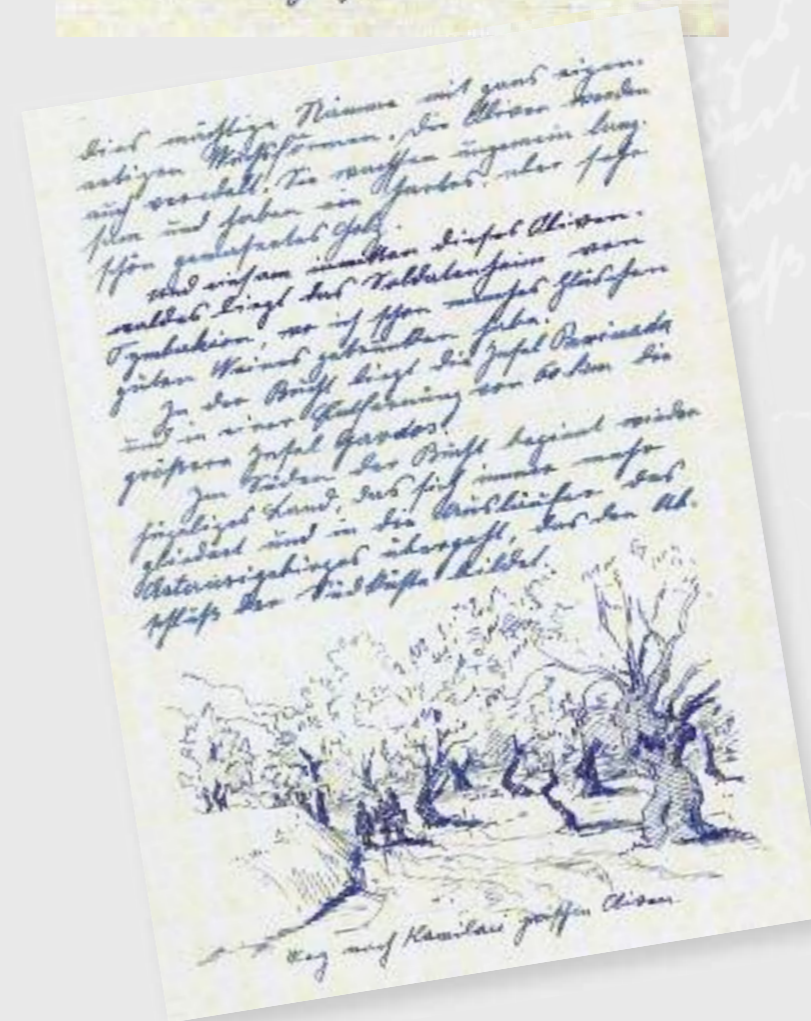 dies mächtige Stämme mit ganz eigen-
artigen Wuchsformen. Die Oliven werden
auch veredelt. Sie wachsen ungemein lang-
sam und haben ein hartes, aber sehr
schön gemasertes Holz.
Und inmitten dieses Oliven-
waldes liegt das Soldatenheim von
Tymbakion, wo ich schon manches Gläschen
guten Weines getrunken habe.
In der Bucht liegt die Insel Paximada
und in einer Entfernung von 60 km die
größere Insel Gavdos.
Im Süden der Bucht beginnt wieder
hügeliges Land, das sich immer mehr
gliedert und in die Ausläufer des
Asterusigebirges übergeht, das den Ab-
schluß der Südküste bildet.
Weg nach Kamilari zwischen Oliven